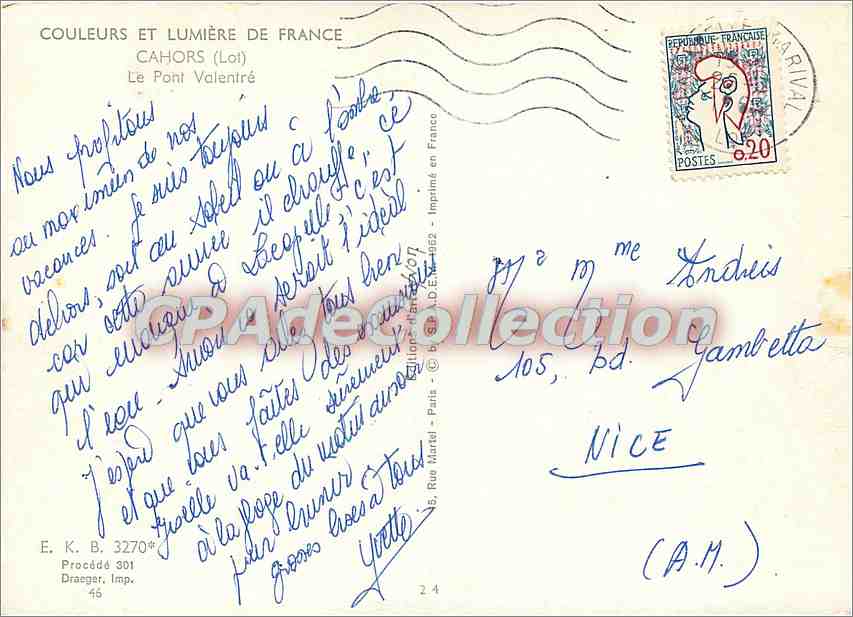 COULEURS ET LUMIÈRE DE FRANCE
CAHORS (Lot)
Le Pont Valentré
Nous profitons
au maximum de nos
vacances. Je suis toujours
dehors, soit au soleil ou à l'ombre,
car cette année il chauffe, ce
qui manque à Lacapelle, c'est
l'eau - Sinon ce serait l'idéal
J'espère que vous allez tous bien
et que vous faites des
Giselle va-t-elle sûrement
à la plage du matin au soir
pour brunir
grosses bises à tous
Yvette
E. K. B. 3270*
Procédé 301
Draeger, Imp.
46
5, Rue Martel - Paris - © by S.P.A.D.E.M. 1962 - Imprimé en France
Editions d'art Yvon
24
REPUBLIQUE FRANÇAISE
POSTES
0.20
MARIVAL
Mr Mme Andreis
105, bd. Gambetta
NICE
(A.M.)
CPAdeCollection